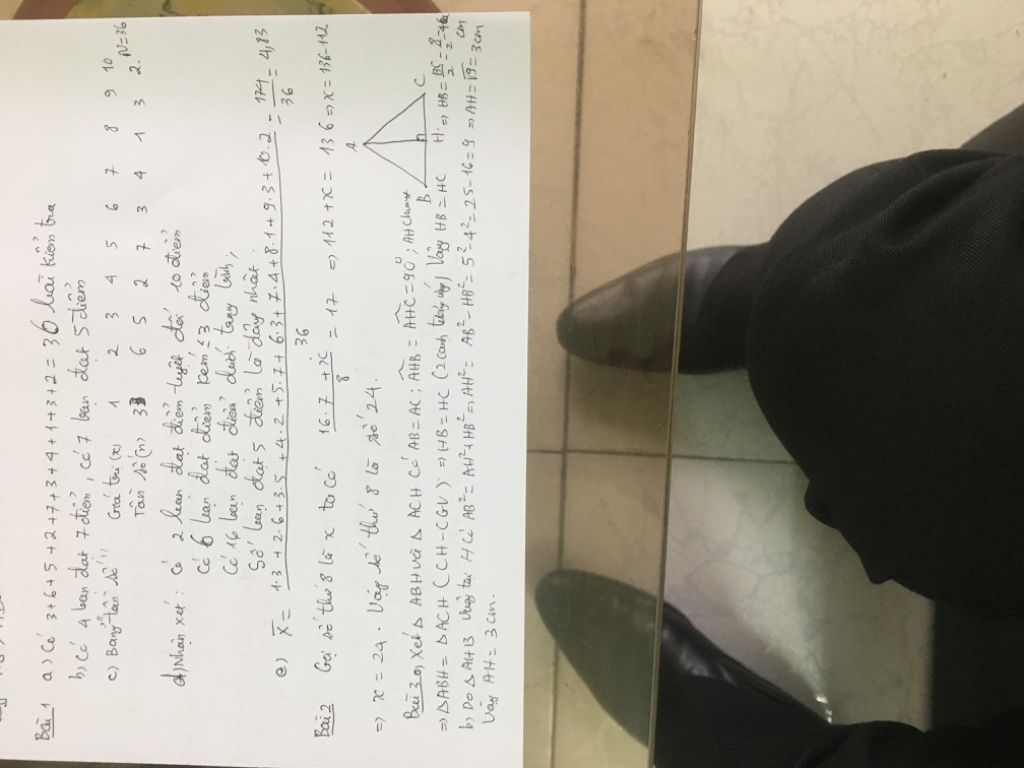 Bài 1 a) Có 3+6+5+2+7+3+4+1+3+2 = 36 bài kiểm tra
b) Có 4 bạn đạt 7 điểm, có 7 bạn đạt 5 điểm
c) Bảng "tần số":
Giá trị (x) 1 2 3 4 5 6 7 8 9 10
Tần số (n) 3 6 5 2 7 3 4 1 3 2. N=36
d) Nhận xét: Có 2 bạn đạt điểm tuyệt đối 10 điểm
Có 6 bạn đạt điểm kém ≤ 3 điểm
Có 16 bạn đạt điểm dưới trung bình;
Số bạn đạt 5 điểm là đông nhất.
e) X̄ = (1.3 + 2.6 + 3.5 + 4.2 + 5.7 + 6.3 + 7.4 + 8.1 + 9.3 + 10.2)/36 = 174/36 = 4,83
Bài 2 Gọi số thứ 8 là x ta có (16.7 + x)/8 = 17 ⇒ 112 + x = 136 ⇒ x = 136-112
⇒ x = 24. Vậy số thứ 8 là số 24.
A
B
H
C
Bài 3 a) Xét Δ ABH và Δ ACH Có AB = AC; AHB = AHC = 90°; AH chung
⇒ ΔABH = ΔACH (CH-CGV) ⇒ HB = HC (2 cạnh tương ứng) Vậy HB = HC ⇒ HB = BC/2 = 8/2 = 4 cm
b) Do ΔAHB vuông tại H Có AB² = AH² + HB² ⇒ AH² = AB² - HB² = 5² - 4² = 25 - 16 = 9 ⇒ AH = √9 = 3 cm
Vậy AH = 3 cm.